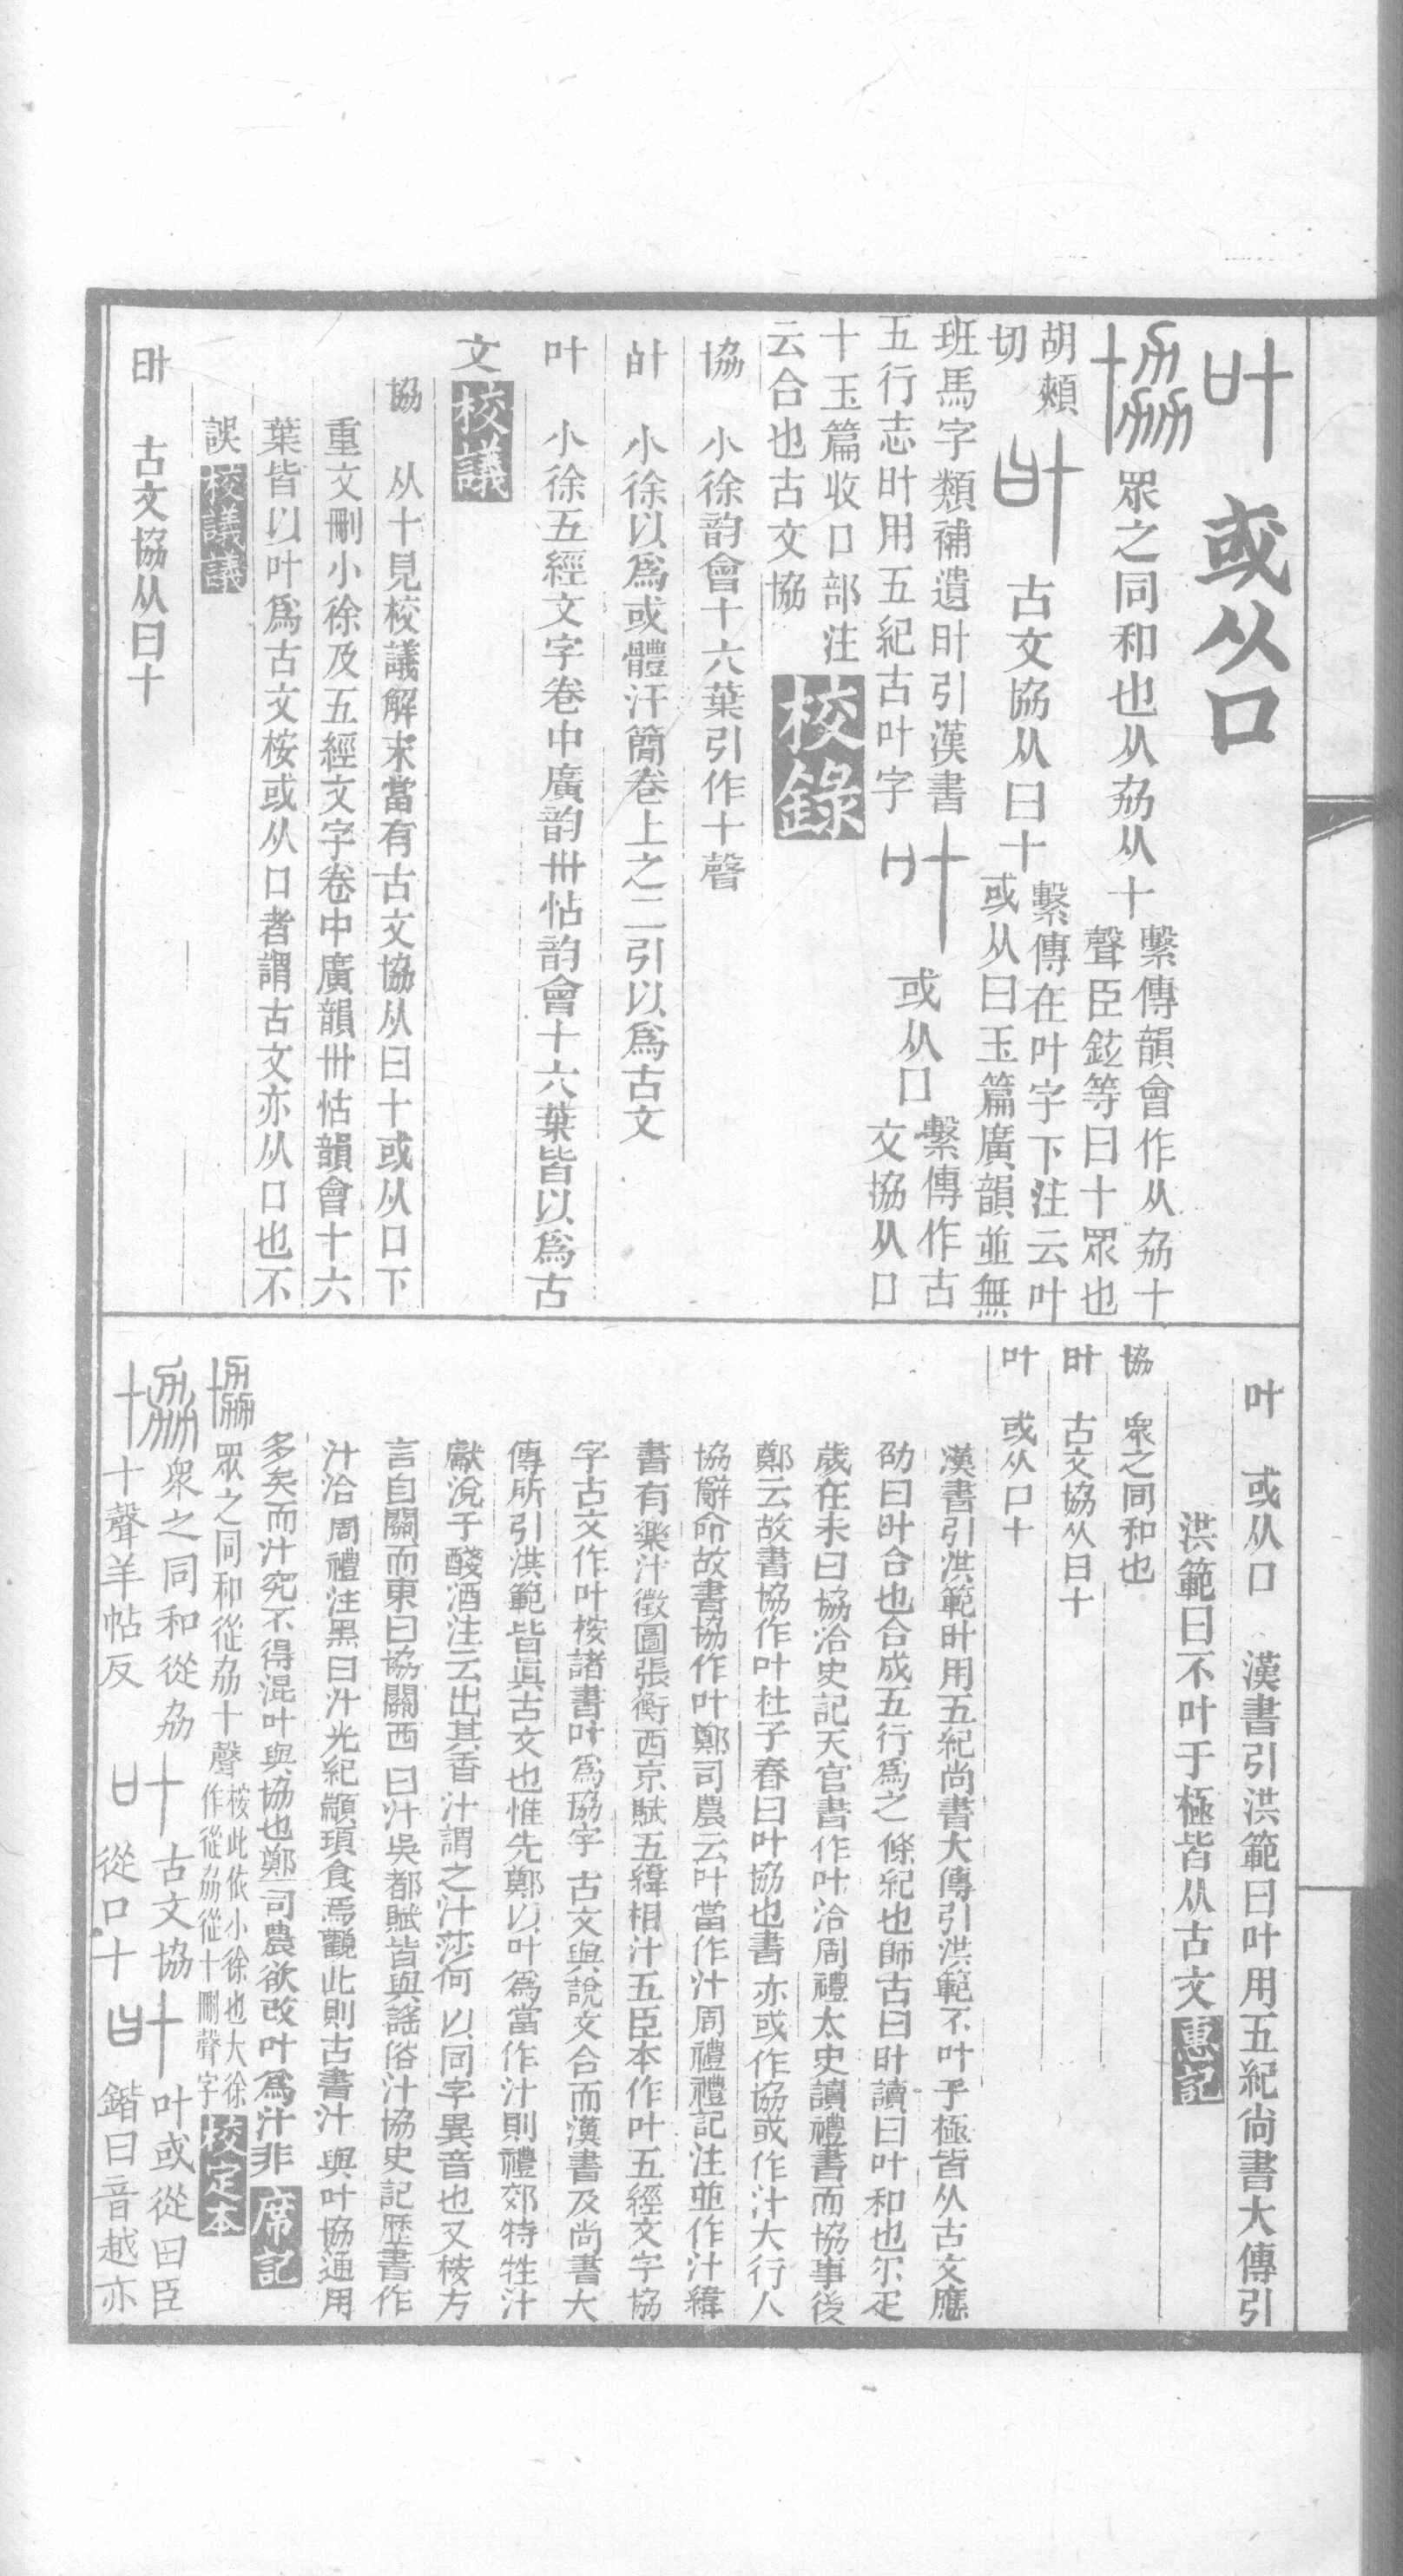 叶 或从口
協 眾之同和也从劦从十 繫傳韻會作从劦十
聲臣鉉等曰十眾也
胡頰
切 叶 古文協从曰十 繫傳在叶字下注云叶
或从曰玉篇廣韻並無
班馬字類補遺叶引漢書
五行志叶用五紀古叶字
十玉篇收口部注
云合也古文協 叶 或从口 繫傳作古
文協从口
校錄
協 小徐韵會十六葉引作十聲
叶 小徐以爲或體汗簡卷上之二引以爲古文
叶 小徐五經文字卷中廣韵卅怗韵會十六葉皆以爲古
文 校議
協 从十見校議解末當有古文協从曰十或从口下
重文刪小徐及五經文字卷中廣韻卅怗韻會十六
葉皆以叶爲古文桉或从口者謂古文亦从口也不
誤 校議議
叶 古文協从曰十
叶 或从口 漢書引洪範曰叶用五紀尚書大傳引
洪範曰不叶于極皆从古文 惠記
協 眾之同和也
叶 古文協从曰十
叶 或从口十
漢書引洪範叶用五紀尚書大傳引洪範不叶于極皆从古文應
劭曰叶合也合成五行爲之條紀也師古曰叶讀曰叶和也尔疋
歲在未曰協洽史記天官書作叶洽周禮太史讀禮書而協事後
鄭云故書協作叶杜子春曰叶協也書亦或作協或作汁大行人
協辭命故書協作叶鄭司農云叶當作汁周禮禮記注並作汁緯
書有樂汁徵圖張衡西京賦五緯相汁五臣本作叶五經文字協
字古文作叶桉諸書叶爲協字古文與說文合而漢書及尚書大
傳所引洪範皆眞古文也惟先鄭以叶爲當作汁則禮郊特牲汁
獻涗于醆酒注云出其香汁謂之汁莎何以同字異音也又桉方
言自關而東曰協關西曰汁吳都賦皆與謠俗汁協史記歷書作
汁洽周禮注黑曰汁光紀顓頊食焉觀此則古書汁與叶協通用
多矣而汁究不得混叶與協也鄭司農欲改叶爲汁非 席記
協 眾之同和從劦十聲 桉此依小徐也大徐
作從劦從十刪聲字 校定本
協 眾之同和從劦 叶 古文協 叶 叶或從曰臣
十聲羊帖反 從口十 鍇曰音越亦